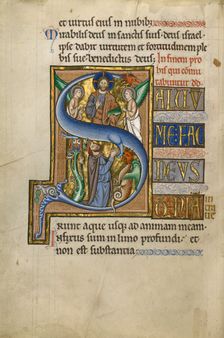 et virtus eius in nubibus
Mirabilis deus in sanctis suis deus israel
ipse dabit virtutem et fortitudinem ple
bis sue benedictus deus
In finem
SALVU
ME FAC
DEUS
runt aque usq; ad animam meam
nfixus sum in limo profundi et
non est substantia